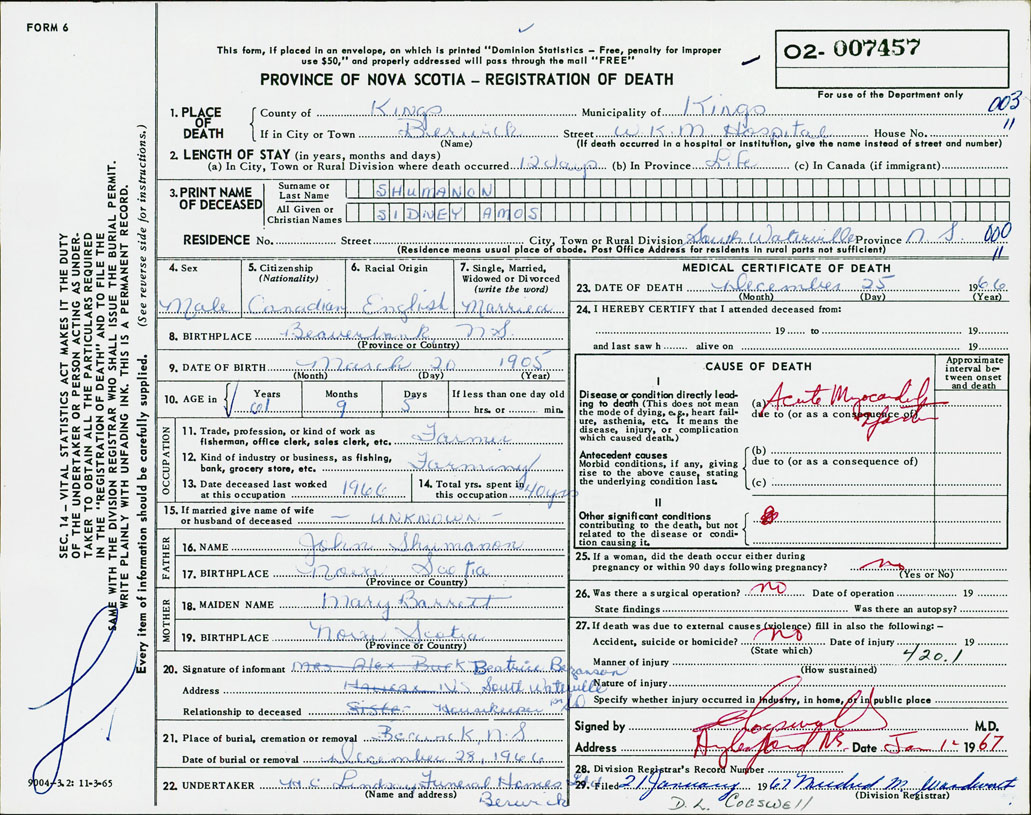 FORM 6
This form, if placed in an envelope, on which is printed "Dominion Statistics – Free, penalty for improper
use $50," and properly addressed will pass through the mail "FREE"
PROVINCE OF NOVA SCOTIA – REGISTRATION OF DEATH
O2- 007457
For use of the Department only
003
11
1. PLACE OF DEATH
County of Kings Municipality of Kings
If in City or Town Berwick Street W.K.M. Hospital House No.
(Name) (If death occurred in a hospital or institution, give the name instead of street and number)
2. LENGTH OF STAY (in years, months and days)
(a) In City, Town or Rural Division where death occurred 12 days (b) In Province Life (c) In Canada (if immigrant)
3. PRINT NAME OF DECEASED
Surname or Last Name SHUMANON
All Given or Christian Names SIDNEY AMOS
RESIDENCE No. Street City, Town or Rural Division South Waterville Province N S. 000
11
(Residence means usual place of abode. Post Office Address for residents in rural parts not sufficient)
4. Sex
Male
5. Citizenship
(Nationality)
Canadian
6. Racial Origin
English
7. Single, Married,
Widowed or Divorced
(write the word)
Married
8. BIRTHPLACE Beaverbank N.S.
(Province or Country)
9. DATE OF BIRTH March 20 1905
(Month) (Day) (Year)
10. AGE in
Years Months Days If less than one day old
61 9 5 hrs. or min.
OCCUPATION
11. Trade, profession, or kind of work as
fisherman, office clerk, sales clerk, etc. Farmer
12. Kind of industry or business, as fishing,
bank, grocery store, etc. Farming
13. Date deceased last worked
at this occupation 1966
14. Total yrs. spent in
this occupation 40 yrs
15. If married give name of wife
or husband of deceased - UNKNOWN -
FATHER
16. NAME John Shumanon
17. BIRTHPLACE Nova Scotia
(Province or Country)
MOTHER
18. MAIDEN NAME Mary Barrett
19. BIRTHPLACE Nova Scotia
(Province or Country)
20. Signature of informant Mrs Alex Beatrice Bezanson
Address N.S South Waterville
Relationship to deceased Sister Housekeeper
21. Place of burial, cremation or removal Berwick, N.S
Date of burial or removal December 28, 1966
22. UNDERTAKER H C Lindsay Funeral Homes Ltd
(Name and address) Berwick
MEDICAL CERTIFICATE OF DEATH
23. DATE OF DEATH December 25 1966
(Month) (Day) (Year)
24. I HEREBY CERTIFY that I attended deceased from:
19 to 19
and last saw h alive on 19
CAUSE OF DEATH
Approximate
interval be-
tween onset
and death
I
Disease or condition directly lead-
ing to death (This does not mean
the mode of dying, e.g., heart fail-
ure, asthenia, etc. It means the
disease, injury, or complication
which caused death.)
(a) Acute Myocardial
due to (or as a consequence of)
Antecedent causes
Morbid conditions, if any, giving
rise to the above cause, stating
the underlying condition last.
(b)
due to (or as a consequence of)
(c)
II
Other significant conditions
contributing to the death, but not
related to the disease or condi-
tion causing it.
25. If a woman, did the death occur either during
pregnancy or within 90 days following pregnancy? no
(Yes or No)
26. Was there a surgical operation? no Date of operation 19
State findings Was there an autopsy?
27. If death was due to external causes (violence) fill in also the following: –
Accident, suicide or homicide? no Date of injury 19
(State which) 420.1
Manner of injury
(How sustained)
Nature of injury
Specify whether injury occurred in industry, in home, or in public place
Signed by Cogswell M.D.
Address Aylesford NS. Date Jan 12 1967
28. Division Registrar's Record Number
29. Filed 21 January 1967 Mildred M.
D. L. COGSWELL (Division Registrar)
SEC. 14 – VITAL STATISTICS ACT MAKES IT THE DUTY
OF THE UNDERTAKER OR PERSON ACTING AS UNDER-
TAKER TO OBTAIN ALL THE PARTICULARS REQUIRED
IN THE "REGISTRATION OF DEATH" AND TO FILE THE
SAME WITH THE DIVISION REGISTRAR WHO SHALL ISSUE THE BURIAL PERMIT.
WRITE PLAINLY WITH UNFADING INK. THIS IS A PERMANENT RECORD.
Every item of information should be carefully supplied. (See reverse side for instructions.)
9004-3.2: 11-3-65